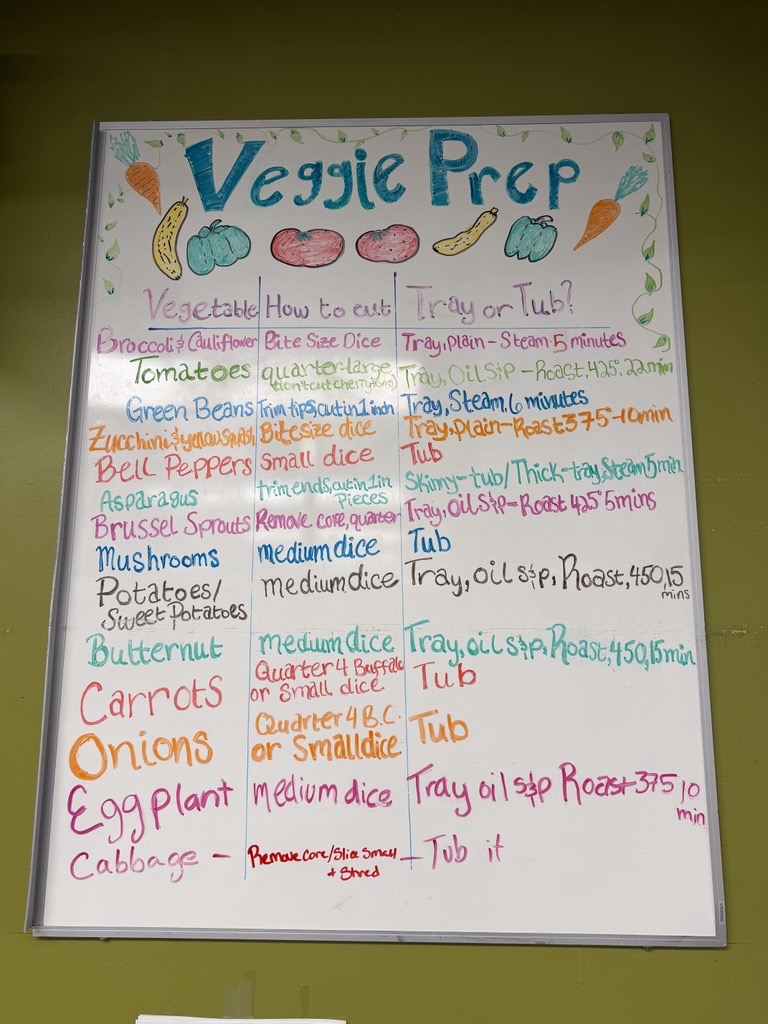 Veggie Prep
Vegetable How to cut Tray or Tub?
Broccoli & Cauliflower Bite Size Dice Tray, Plain - Steam 5 minutes
Tomatoes quarter large Tray, Oil S&P - Roast, 425°, 22 min
(don't cut cherry toms)
Green Beans Trim tips, cut in 1 inch Tray, Steam, 6 minutes
Zucchini & yellow Squash Bite size dice Tray, Plain - Roast 375° - 10 min
Bell Peppers Small dice Tub
Asparagus trim ends, cut in 1 in Skinny - tub / Thick - tray, Steam 5 min
Pieces
Brussel Sprouts Remove core, quarter Tray, Oil S&P - Roast 425° 5 mins
Mushrooms medium dice Tub
Potatoes/ medium dice Tray, oil s&p, Roast, 450, 15
Sweet Potatoes mins
Butternut medium dice Tray, oil s&p, Roast, 450, 15 min
Carrots Quarter 4 Buffalo Tub
or Small dice
Onions Quarter 4 B.C. Tub
or Small dice
Eggplant medium dice Tray oil s&p Roast 375 10
min
Cabbage - Remove Core/Slice Small - Tub it
+ Shred